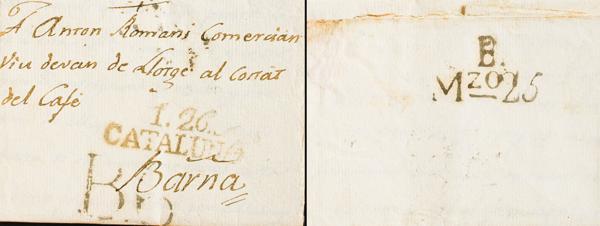 A Anton Romani Comercian
viu devan de Llotge al costat
del Cafe
1. 26.
CATALUÑA
Barna
B.
Mzo 25